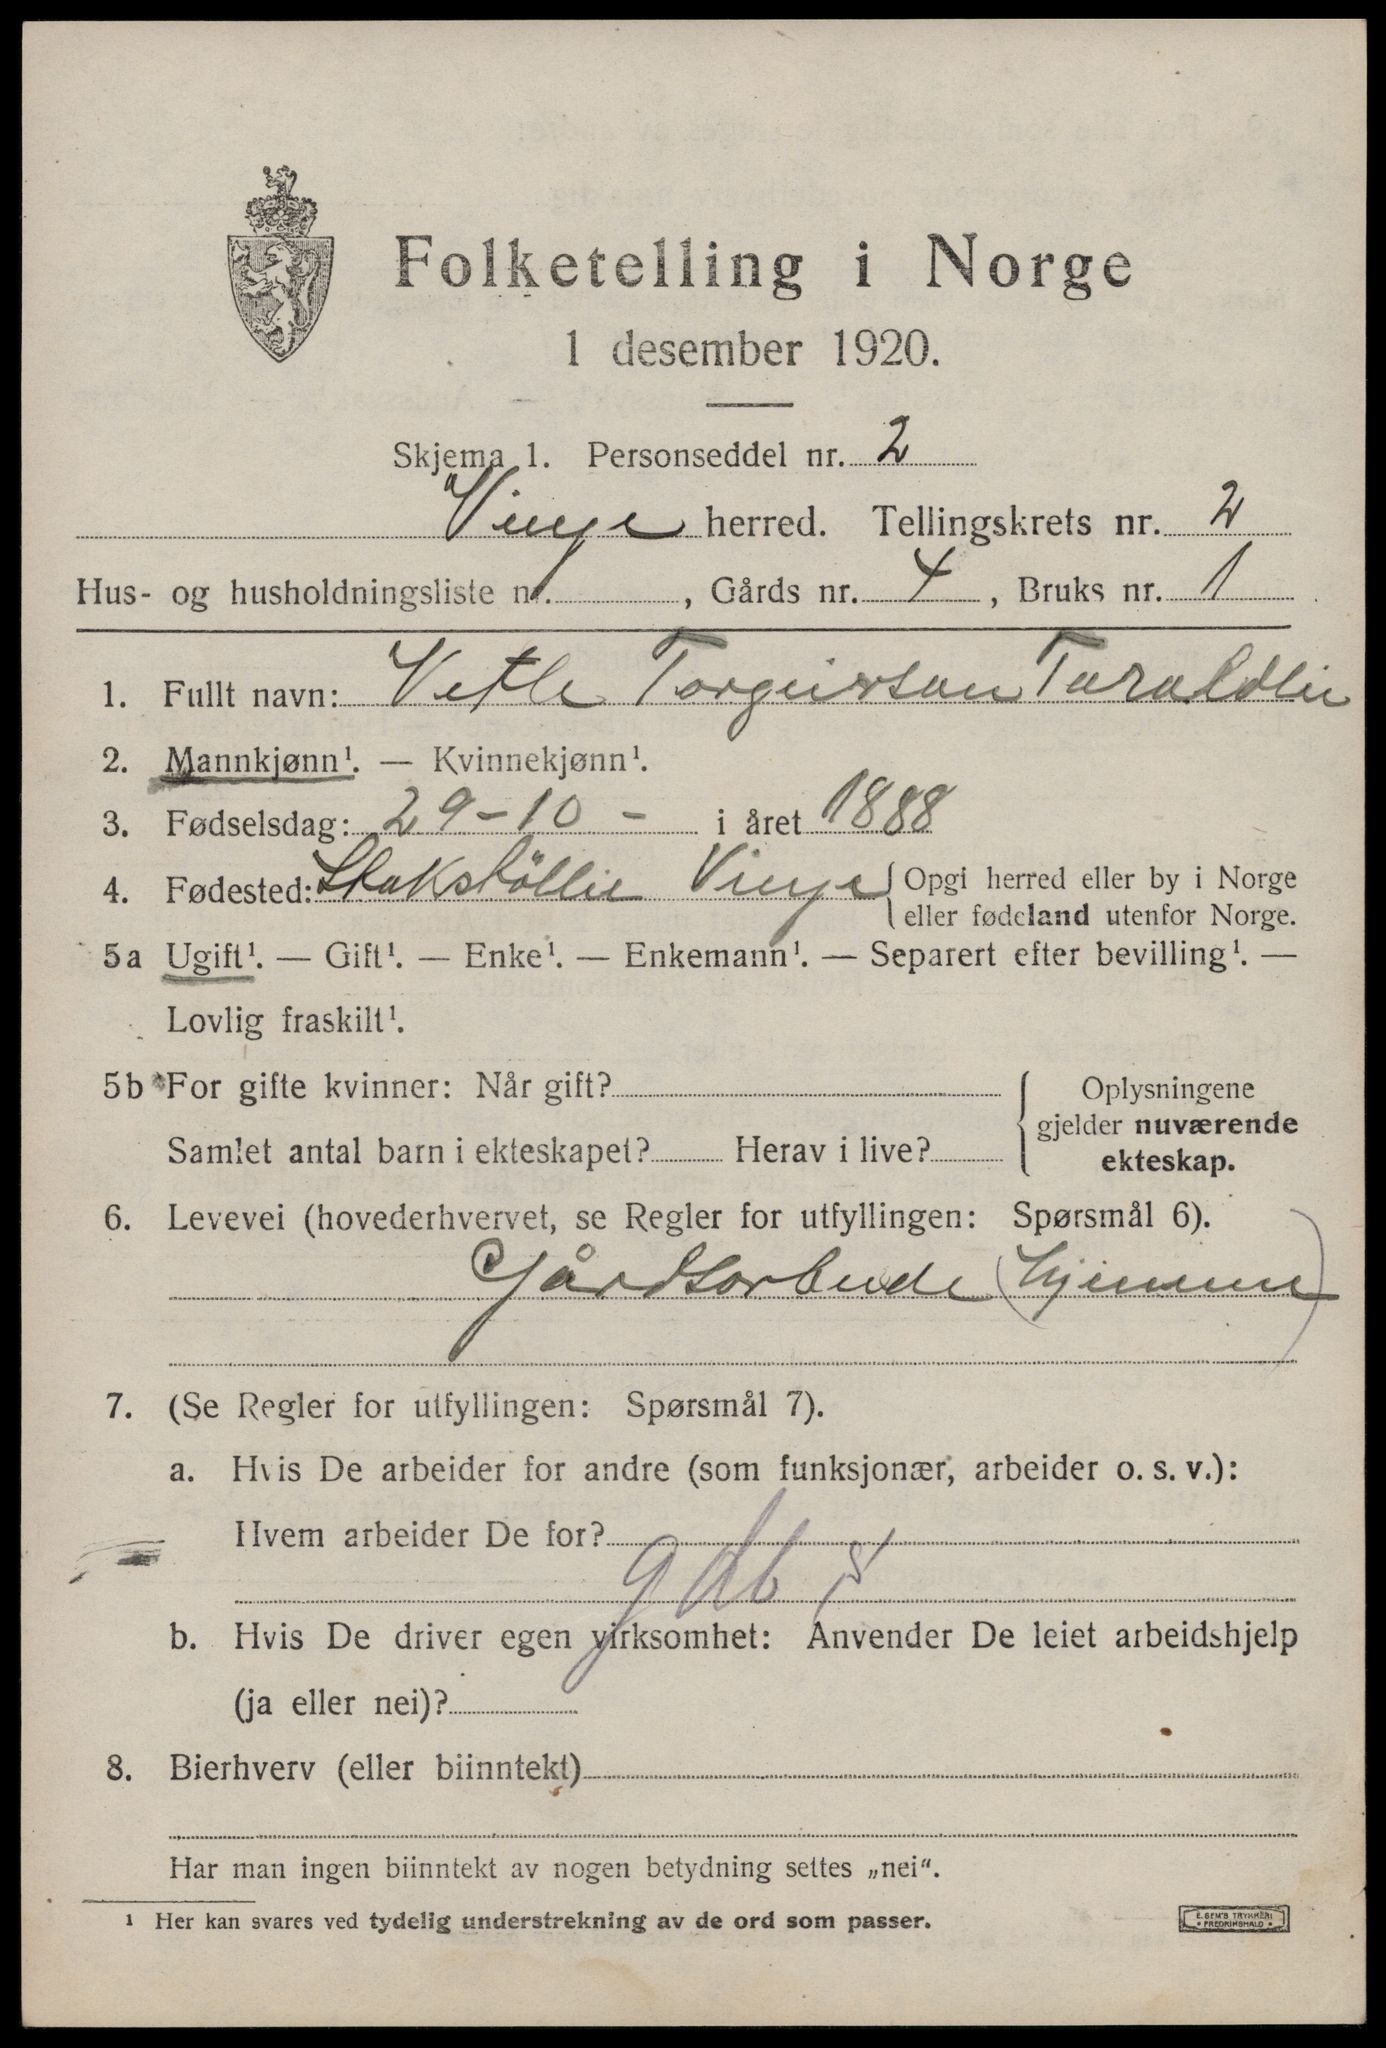 Folketelling i Norge
1 desember 1920.
Skjema 1. Personseddel nr. 2
Vinje herred. Tellingskrets nr. 2
Hus- og husholdningsliste nr. , Gårds nr. 4, Bruks nr. 1
1. Fullt navn: Vetle Torgeirson Taraldlie
2. Mannkjønn¹. — Kvinnekjønn¹.
3. Fødselsdag: 29-10- i året 1888
4. Fødested: Vinje { Opgi herred eller by i Norge
eller fødeland utenfor Norge.
5a Ugift¹. — Gift¹. — Enke¹. — Enkemann¹. — Separert efter bevilling¹. —
Lovlig fraskilt¹.
5b For gifte kvinner: Når gift? { Oplysningene
gjelder nuværende
Samlet antal barn i ekteskapet? Herav i live? ekteskap.
6. Levevei (hovederhvervet, se Regler for utfyllingen: Spørsmål 6).
Gårdsarbeide (hjemme)
7. (Se Regler for utfyllingen: Spørsmål 7).
a. Hvis De arbeider for andre (som funksjonær, arbeider o. s. v.):
Hvem arbeider De for?
gdb s
b. Hvis De driver egen virksomhet: Anvender De leiet arbeidshjelp
(ja eller nei)?
8. Bierhverv (eller biinntekt)
Har man ingen biinntekt av nogen betydning settes „nei“.
¹ Her kan svares ved tydelig understrekning av de ord som passer.
E. SEM'S TRYKKERI
FREDRIKSHALD